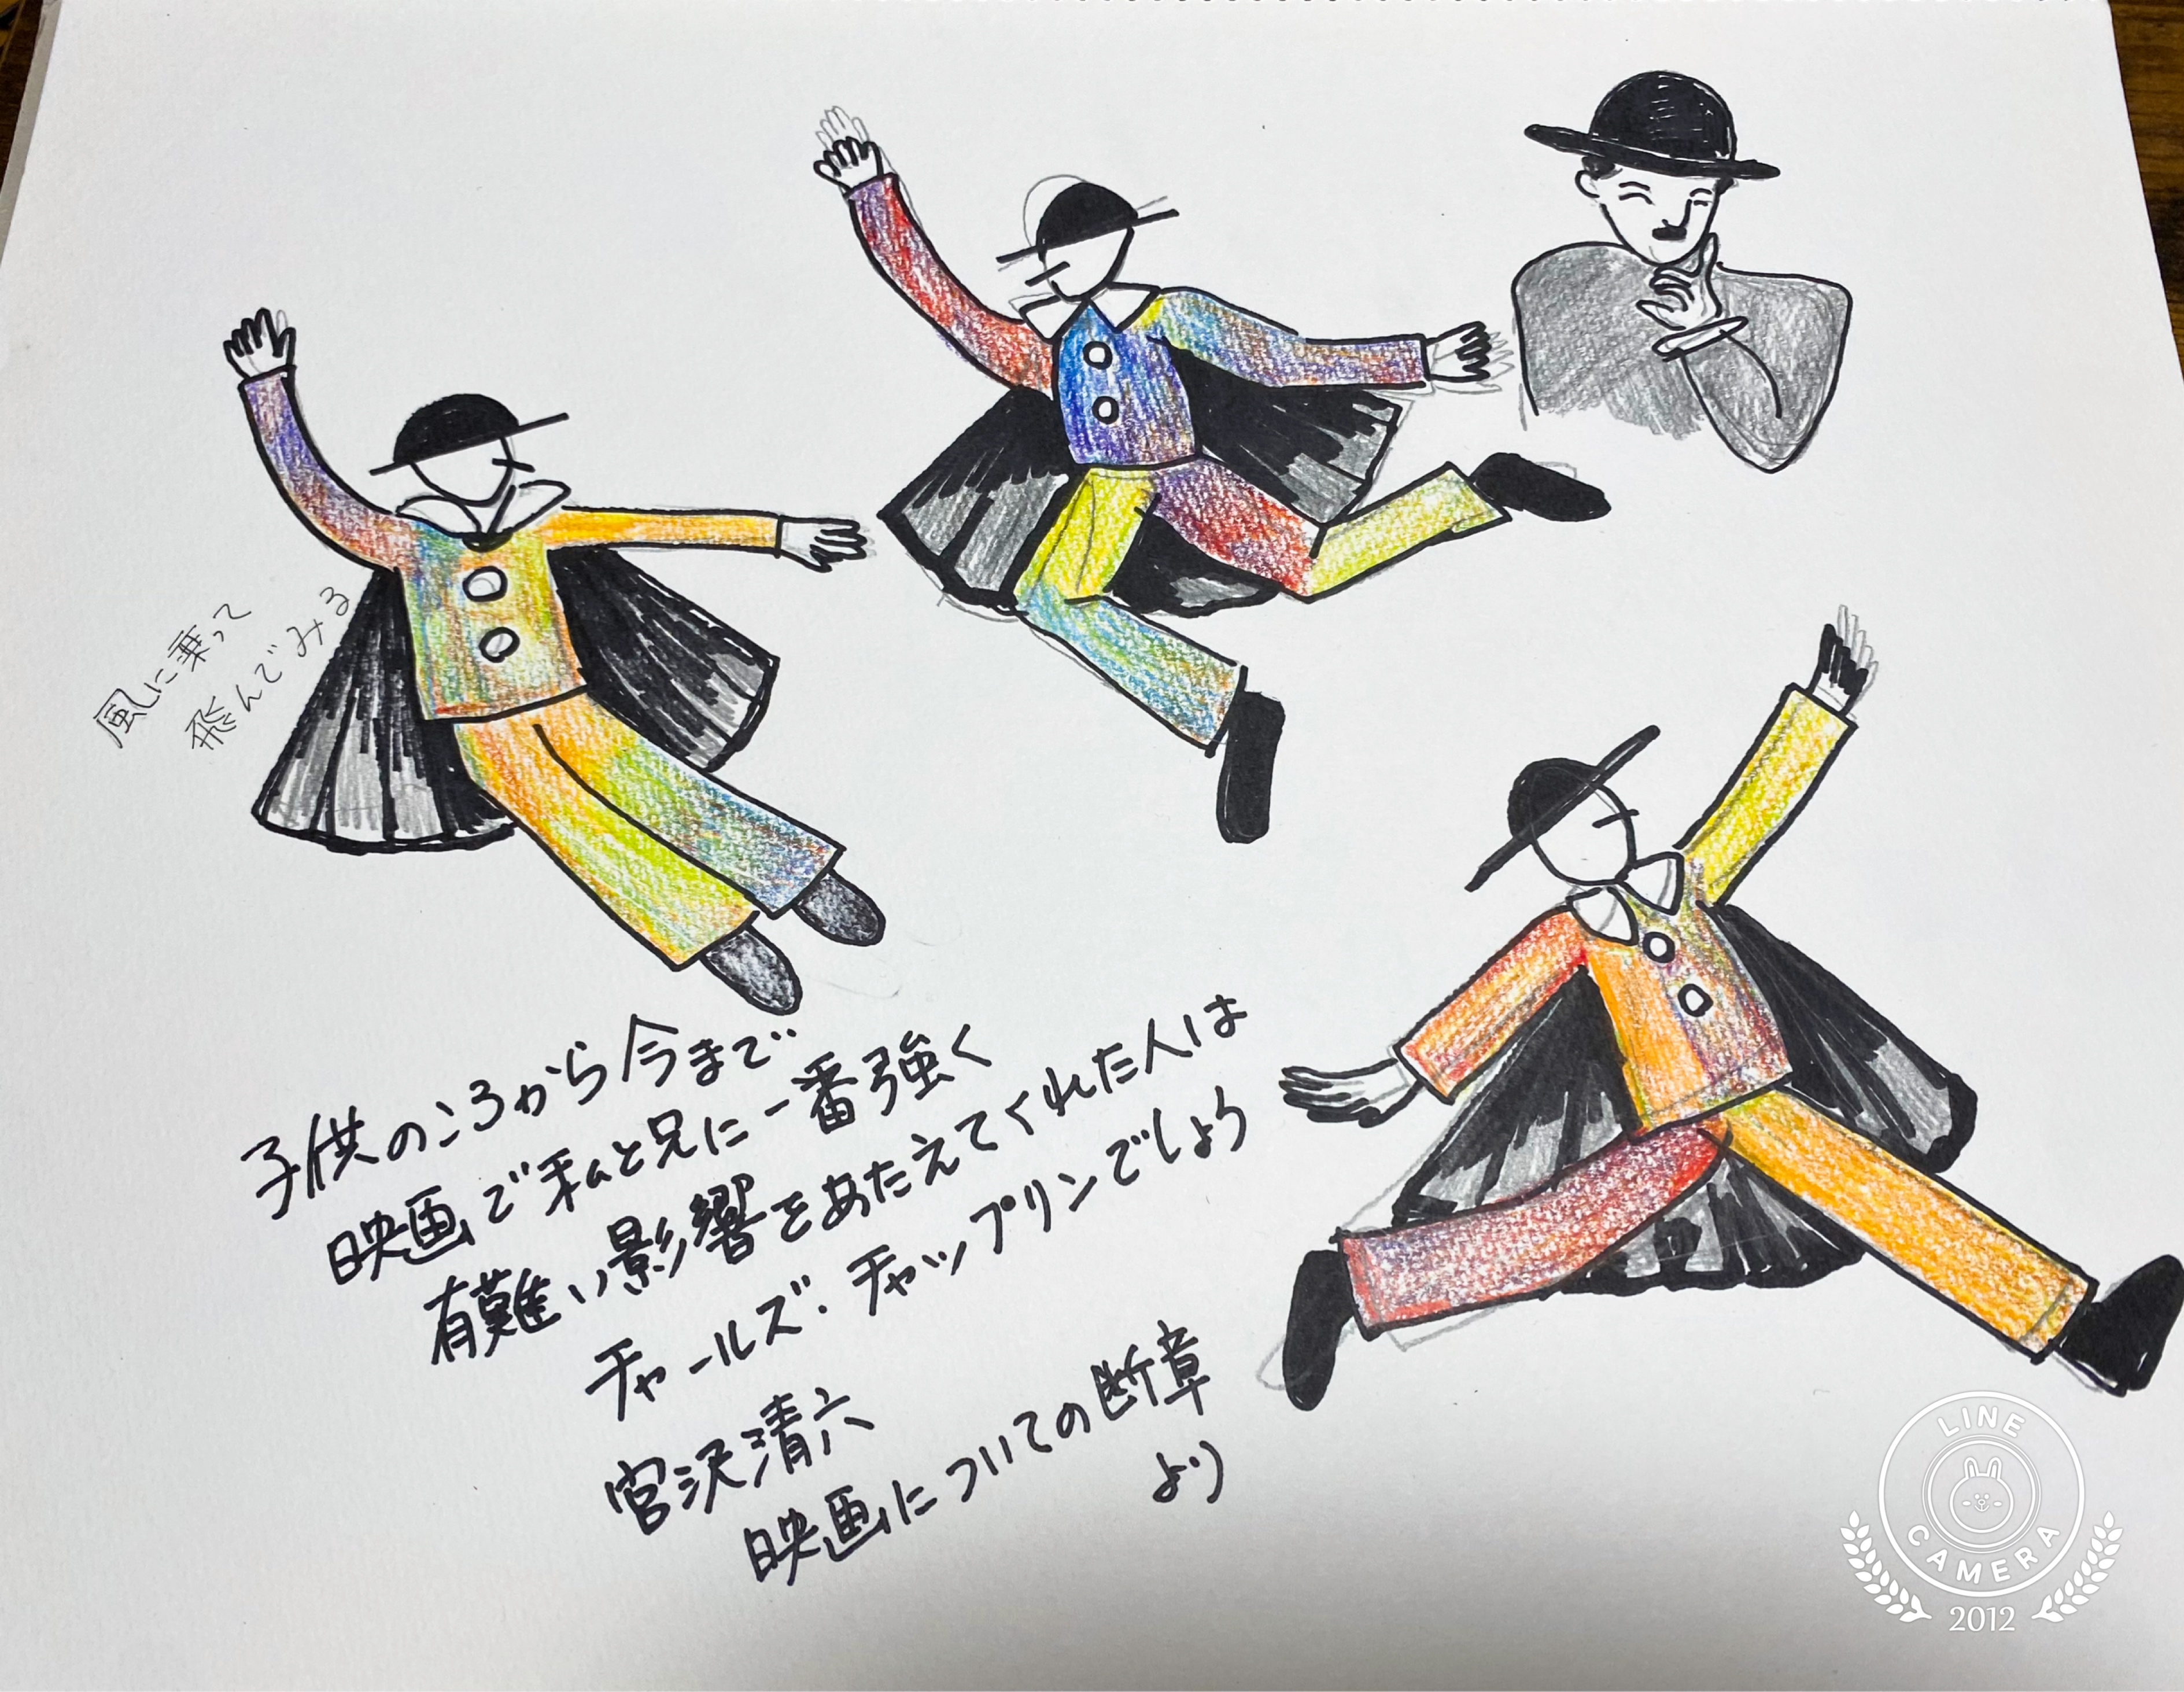 風に乗って
飛んでみる
子供のころから今まで
映画で私と兄に一番強く
有難い影響をあたえてくれた人は
チャールズ・チャップリンでしょう
宮沢清六
映画についての断章
より
LINE
CAMERA
2012